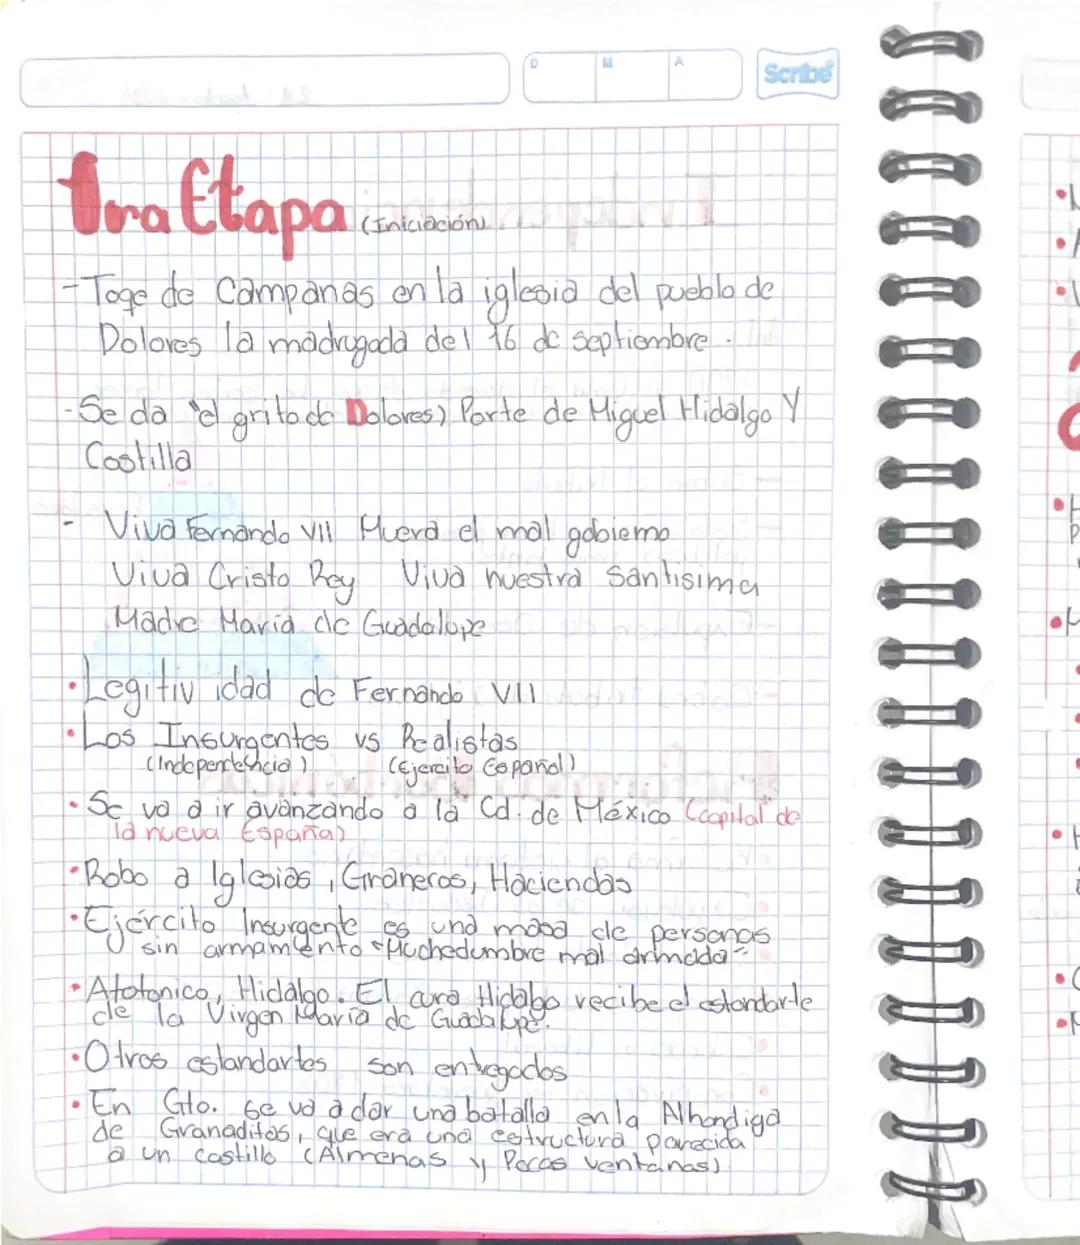 D M A Scribe
1ra Etapa (Iniciación)
- Toqe de Campanas en la iglesia del pueblo de
Dolores la madrugada del 16 de septiembre.
- Se da "el grito de Dolores) Parte de Miguel Hidalgo Y
Costilla
- Viva Fernando VII Muera el mal gobierno
Viva Cristo Rey Viva nuestra santisima
Madre Maria de Guadalupe
• Legitividad de Fernando VII
• Los Insurgentes vs Realistas
(Independencia) (Ejercito Español)
• Se va a ir avanzando a la Cd. de México (capital de
la nueva España)
• Robo a Iglesias, Graneros, Haciendas
• Ejército Insurgente es una masa de personas
sin armamento "Muchedumbre mal armada"
• Atotonico, Hidalgo. El cura Hidalgo recibe el estandarte
de la Virgen Maria de Guadalupe.
• Otros estandartes son entregados
• En Gto. se va a dar una batalla en la Alhondiga
de Granaditas, que era una estructura parecida
a un castillo (Almenas y Pocas ventanas)